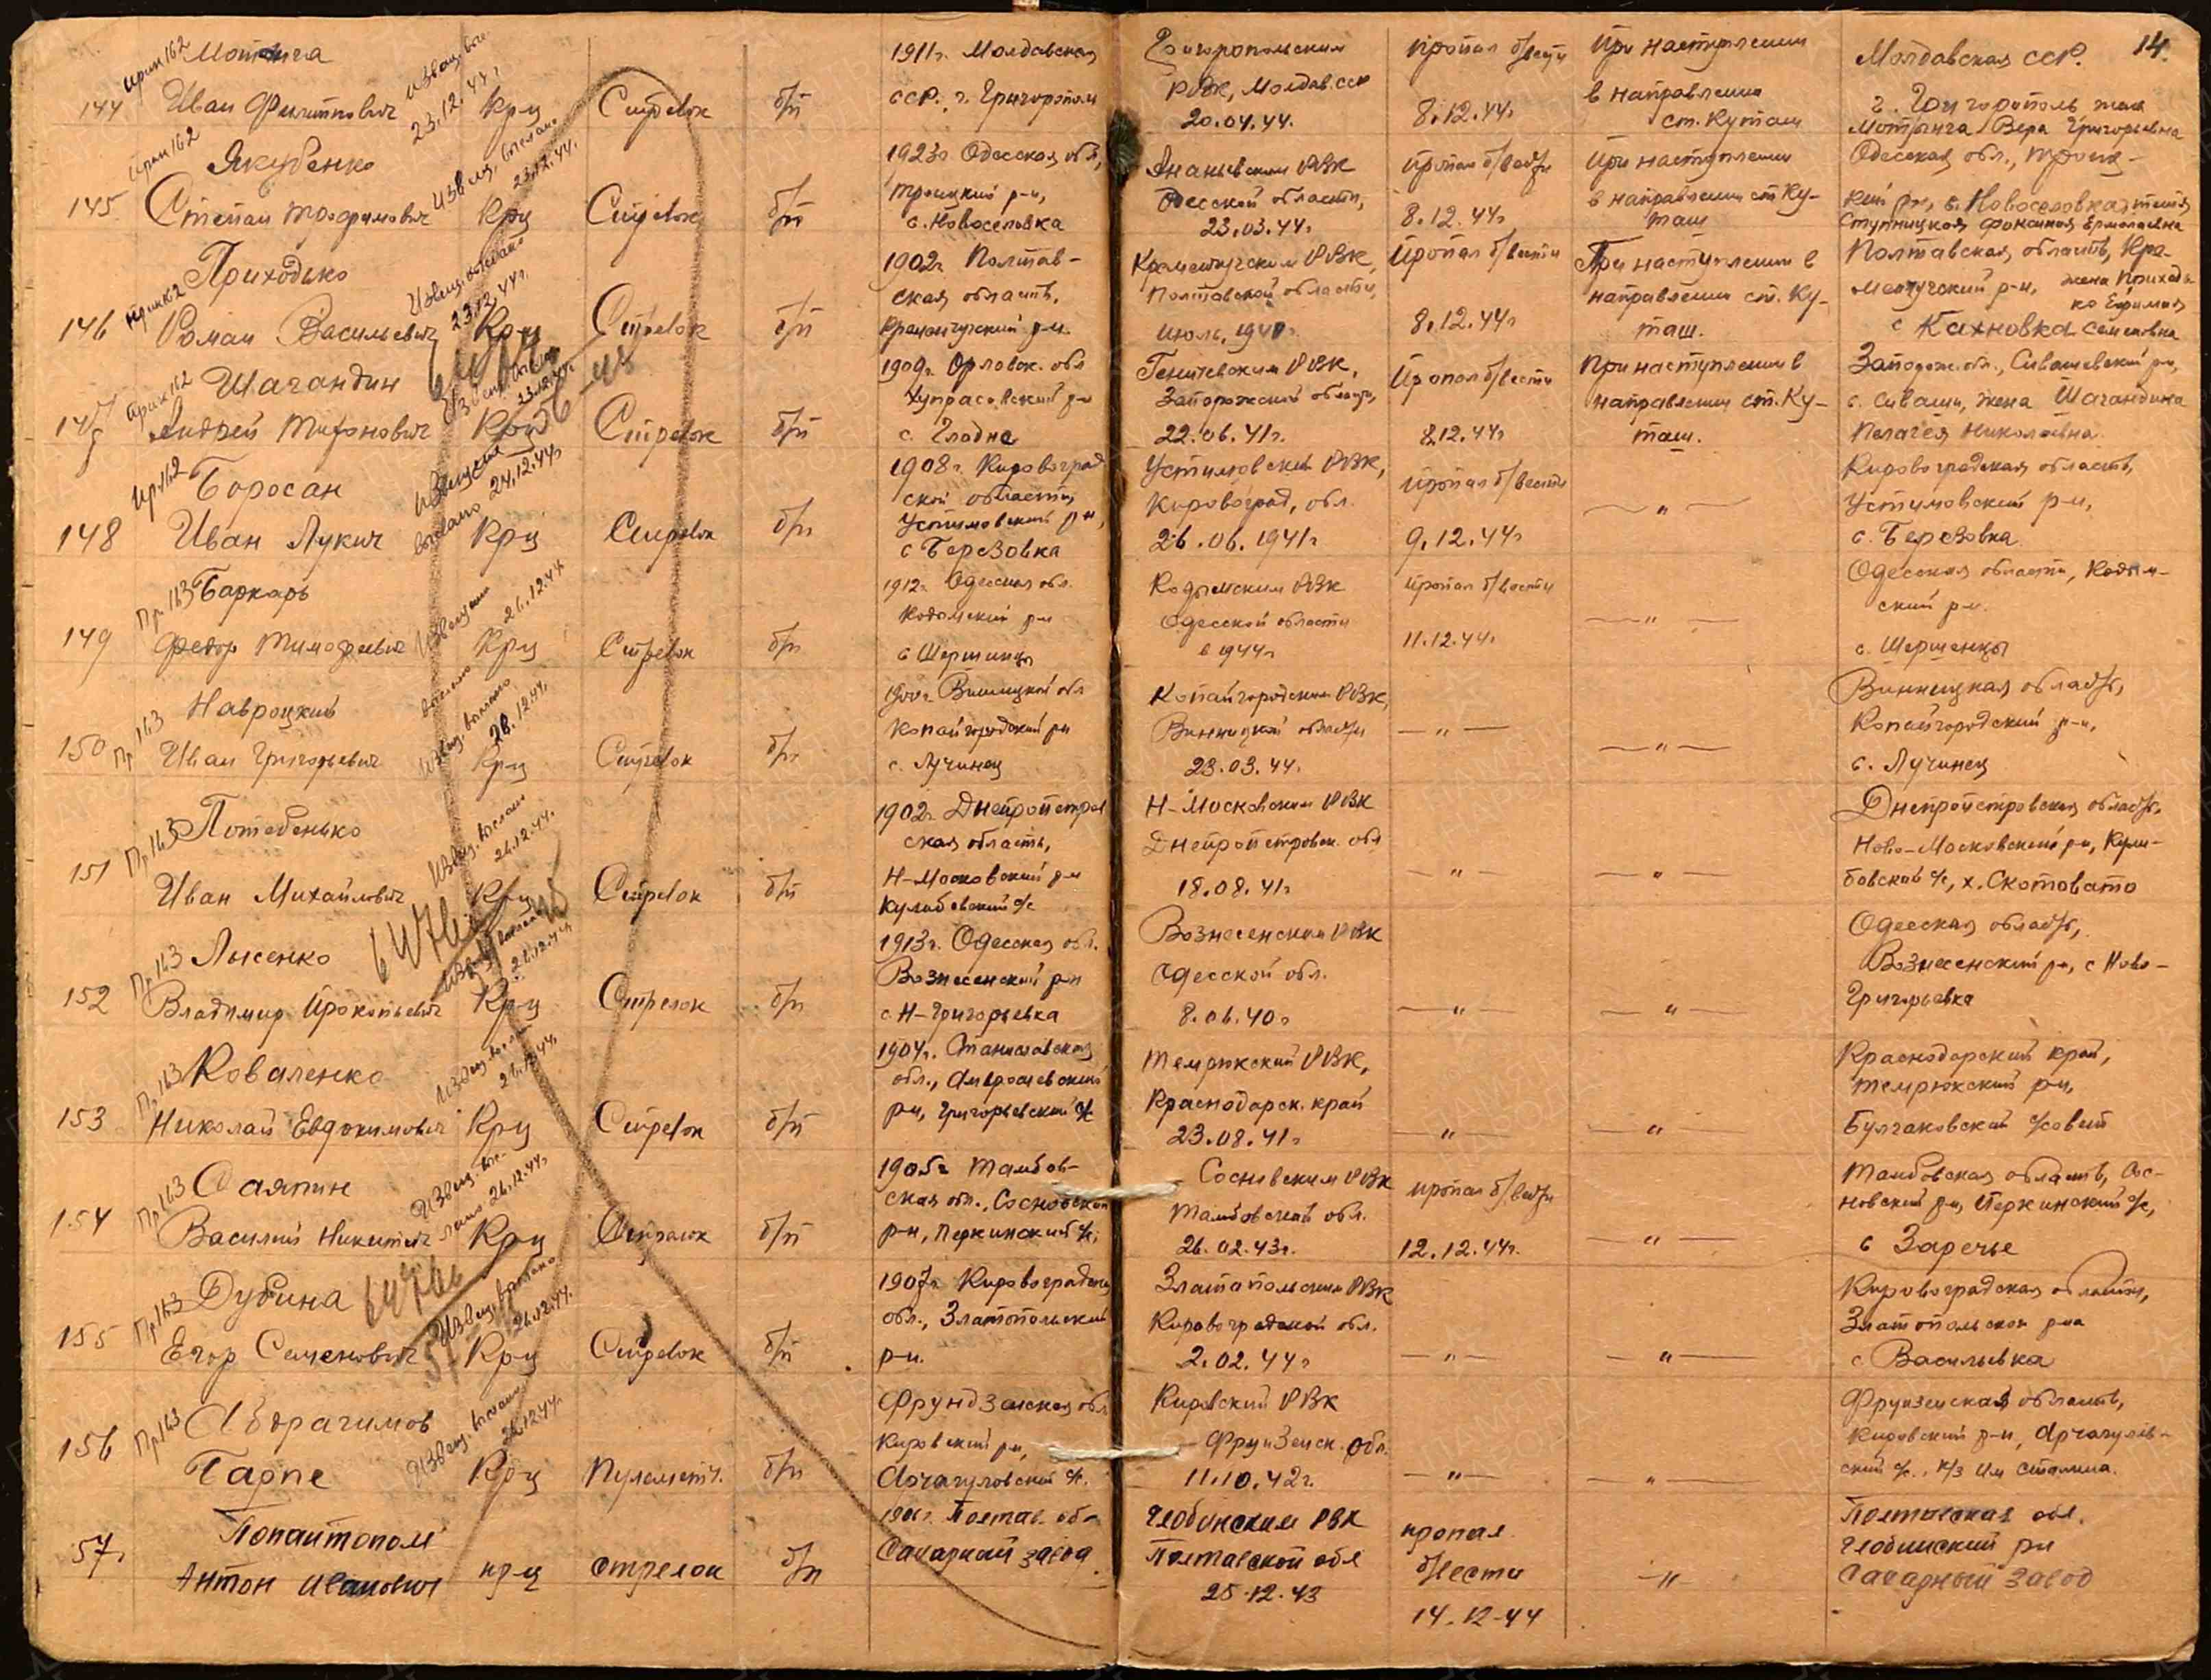 14.
144
Прик 162
Мотынга
Иван Филиппович
23.12.44г
Кр-ц
Стрелок
б/п
1911г. Молдавская
ССР, г. Григорополь
Григоропольским
РВК, Молдав. ССР
20.04.44.
Пропал б/вести
8.12.44г
При наступлении
в направлении
ст. Куташ
Молдавская ССР.
г. Григорополь жена
Мотынга Вера Григорьевна
145
Прик 162
Якубенко
Степан Трофимович
Извещ. выслано
23.12.44г.
Кр-ц
Стрелок
б/п
1923г Одесская обл,
Троицкий р-н,
с. Новоселовка
Ананьевским РВК
Одесской области,
23.03.44г
Пропал б/вести
8.12.44г
При наступлении
в направлении ст. Ку-
таш
Одесская обл., Троиц-
кий р-н, с. Новоселовка, тётя
Ступницкая Ермолаевна
146
Прик 162
Приходько
Роман Васильевич
Извещ. выслано
23.12.44г.
Кр-ц
Стрелок
б/п
1902г Полтав-
ская область,
Кременчугский р-н.
Кременчугским РВК,
Полтавской области,
июль, 1941г.
Пропал б/вести
8.12.44г
При наступлении в
направлении ст. Ку-
таш.
Полтавская область, Кре-
менчугский р-н, жена Приходь-
ко Ефимия
с Кахновка Семеновна
147
Прик 162
Шагандин
Андрей Тифонович
23.12.44г
Кр-ц
Стрелок
б/п
1909г Орловск. обл
р-н
Геническим РВК,
Запорожской области,
22.06.41г.
Пропал б/вести
8.12.44г
При наступлении в
направлении ст. Ку-
таш.
Запорож. обл., Сивашевский р-н,
с. Сиваши, жена Шагандина
Пелагея Николаевна
148
Пр 162
Боросан
Иван Лукич
Извещение
выслано 24.12.44г
Кр-ц
Стрелок
б/п
1908г. Кировоград
ской области,
Устимовский р-н,
с Березовка
Устимовский РВК,
Кировоград, обл.
26.06.1941г
Пропал б/вести
9.12.44г
— " —
Кировоградская область,
Устимовский р-н,
с. Березовка
149
Пр. 163
Баркарь
Федор Тимофеевич
Извещение
выслано
26.12.44
Кр-ц
Стрелок
б/п
1912г. Одесская обл.
Кодымский р-н
с Шершенцы
Кодымским РВК
Одесской области
в 1944г
Пропал б/вести
11.12.44г.
— " —
Одесская область, Кодым-
ский р-н.
с. Шершенцы
150
Пр 163
Навроцкий
Иван Григорьевич
Извещ. выслано
26.12.44г.
Кр-ц
Стрелок
б/п
1900г. Винницкой обл
Копайгородский р-н
с. Лучинец
Копайгородским РВК,
Винницкой области
23.03.44.
— " —
— " —
Винницкая область,
Копайгородский р-н,
с. Лучинец
151
Пр 163
Потебенько
Иван Михайлович
Извещ. выслано
26.12.44г.
Кр-ц
Стрелок
б/п
1902г. Днепропетров
ская область,
Н-Московский р-н
Кулебовский с/с
Н-Московским РВК
Днепропетровск. обл
18.08.41г
— " —
— " —
Днепропетровская область,
Ново-Московский р-н, Кули-
бовский с/с, х. Скотовато
152
Пр 163
Лысенко
Владимир Прокопьевич
26.12.44г
Кр-ц
Стрелок
б/п
1913г. Одесская обл.
Вознесенский р-н
с Н-Григорьевка
Вознесенским РВК
Одесской обл.
8.06.40г
— " —
— " —
Одесская область,
Вознесенский р-н, с Ново-
Григорьевка
153
Пр 163
Коваленко
Николай Евдокимович
26.12.44г.
Кр-ц
Стрелок
б/п
1904г.
обл.,
р-н, Григорьевский с/с
Темрюкский РВК,
Краснодарск. край
23.08.41г
— " —
— " —
Краснодарский край,
Темрюкский р-н,
Булгаковский с/совет
154
Пр 163
Саяпин
Василий Никитич
26.12.44г
Кр-ц
Стрелок
б/п
1905г Тамбов-
ская обл., Сосновский
р-н, Перкинский с/с.
Сосновским РВК
Тамбовской обл.
26.02.43г.
Пропал б/вести
12.12.44г.
— " —
Тамбовская область, Сос-
новский р-н, Перкинский с/с,
с Заречье
155
Пр 163
Дубина
Егор Семенович
64766
Извещ. выслано
26.12.44г.
Кр-ц
Стрелок
б/п
1907г. Кировоградская
обл., Златопольский
р-н.
Златопольским РВК
Кировоградской обл.
2.02.44г
— " —
— " —
Кировоградская область,
Златопольский р-н
с. Васильевка
156
Пр 163
Абдрагимов
Гарпе
Извещ. выслано
26.12.44г.
Кр-ц
Пулеметч.
б/п
Фрундзенская обл
Кировский р-н,
с/с.
Кировский РВК
Фрунзенск. обл.
11.10.42г.
— " —
— " —
Фрунзенская область,
Кировский р-н,
ский с/с., к/з им Сталина.
57.
Попантопол
Антон Иванович
кр-ц
стрелок
б/п
1906г. Полтав. обл
Сахарный завод
Глобинским РВК
Полтавской обл
25.12.43
пропал
б/вести
14.12.44
— " —
Полтавская обл.
Глобинский р-н
Сахарный завод